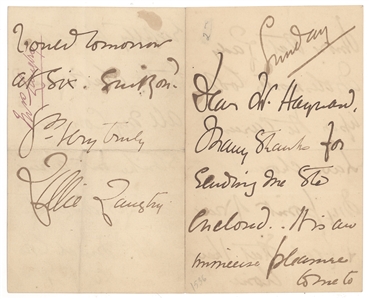 Sunday
Dear Mr. Hayward,
Many thanks for
sending me the
enclosed. It is an
immense pleasure
to me to
Would tomorrow
at six. suit you?
Yrs. very truly
Lillie Langtry
Mrs Langtry